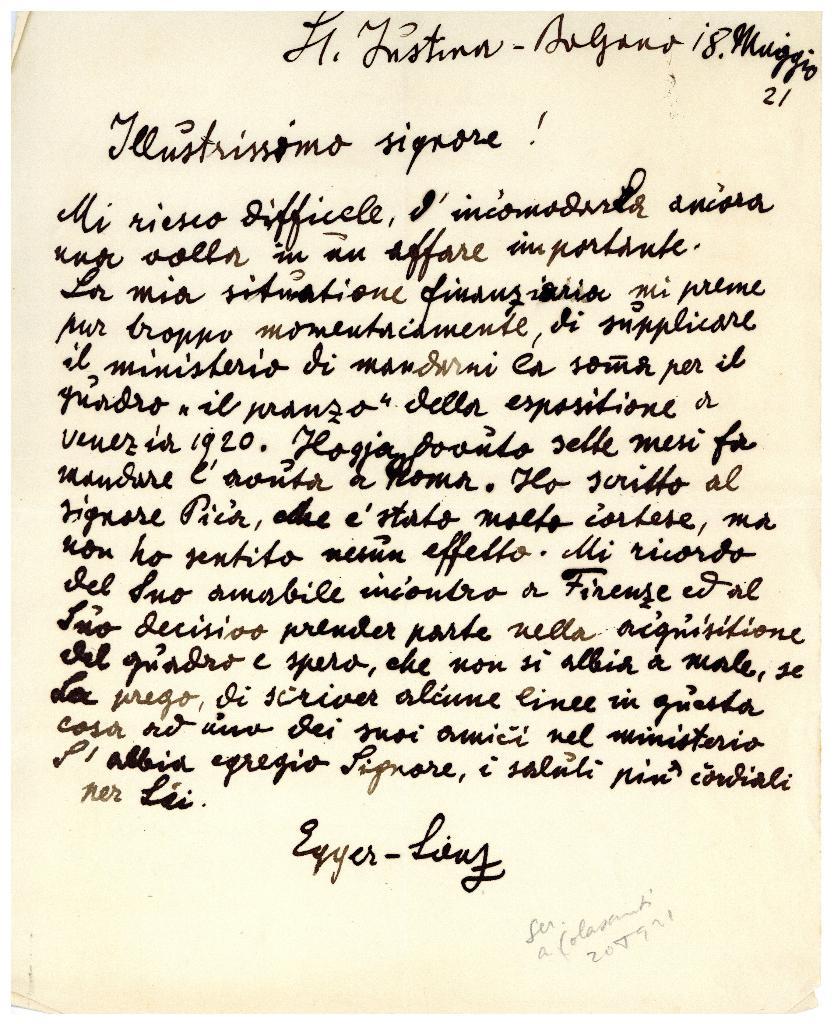 St. Justina - Bolzano 18. Maggio
21
Illustrissimo signore !
Mi riesco difficele, d'incomodarLa ancora
una volta in un affare importante.
La mia situatione finanziaria mi preme
pur troppo momentaciamente, di supplicare
il ministerio di mandarni la som̄a per il
quadro „il pranzo“ della espositione a
venezia 1920. Ho gja dovuto sette mesi fa
mandare l'avuta a Roma. Ho scritto al
signore Pica, che e' stato molto cortese, ma
non ho sentito nesun effetto. Mi ricordo
del Suo amabile incontro a Firenze ed al
Suo decisivo prender parte nella acquisitione
del quadro e spero, che non si abbia a male, se
La prego, di scriver alcune linee in questa
cosa ad uno dei suoi amici nel ministerio
S'abbia egregio Signore, i saluti piu' cordiali
per Lei.
Egger-Lienz
a Colasanti